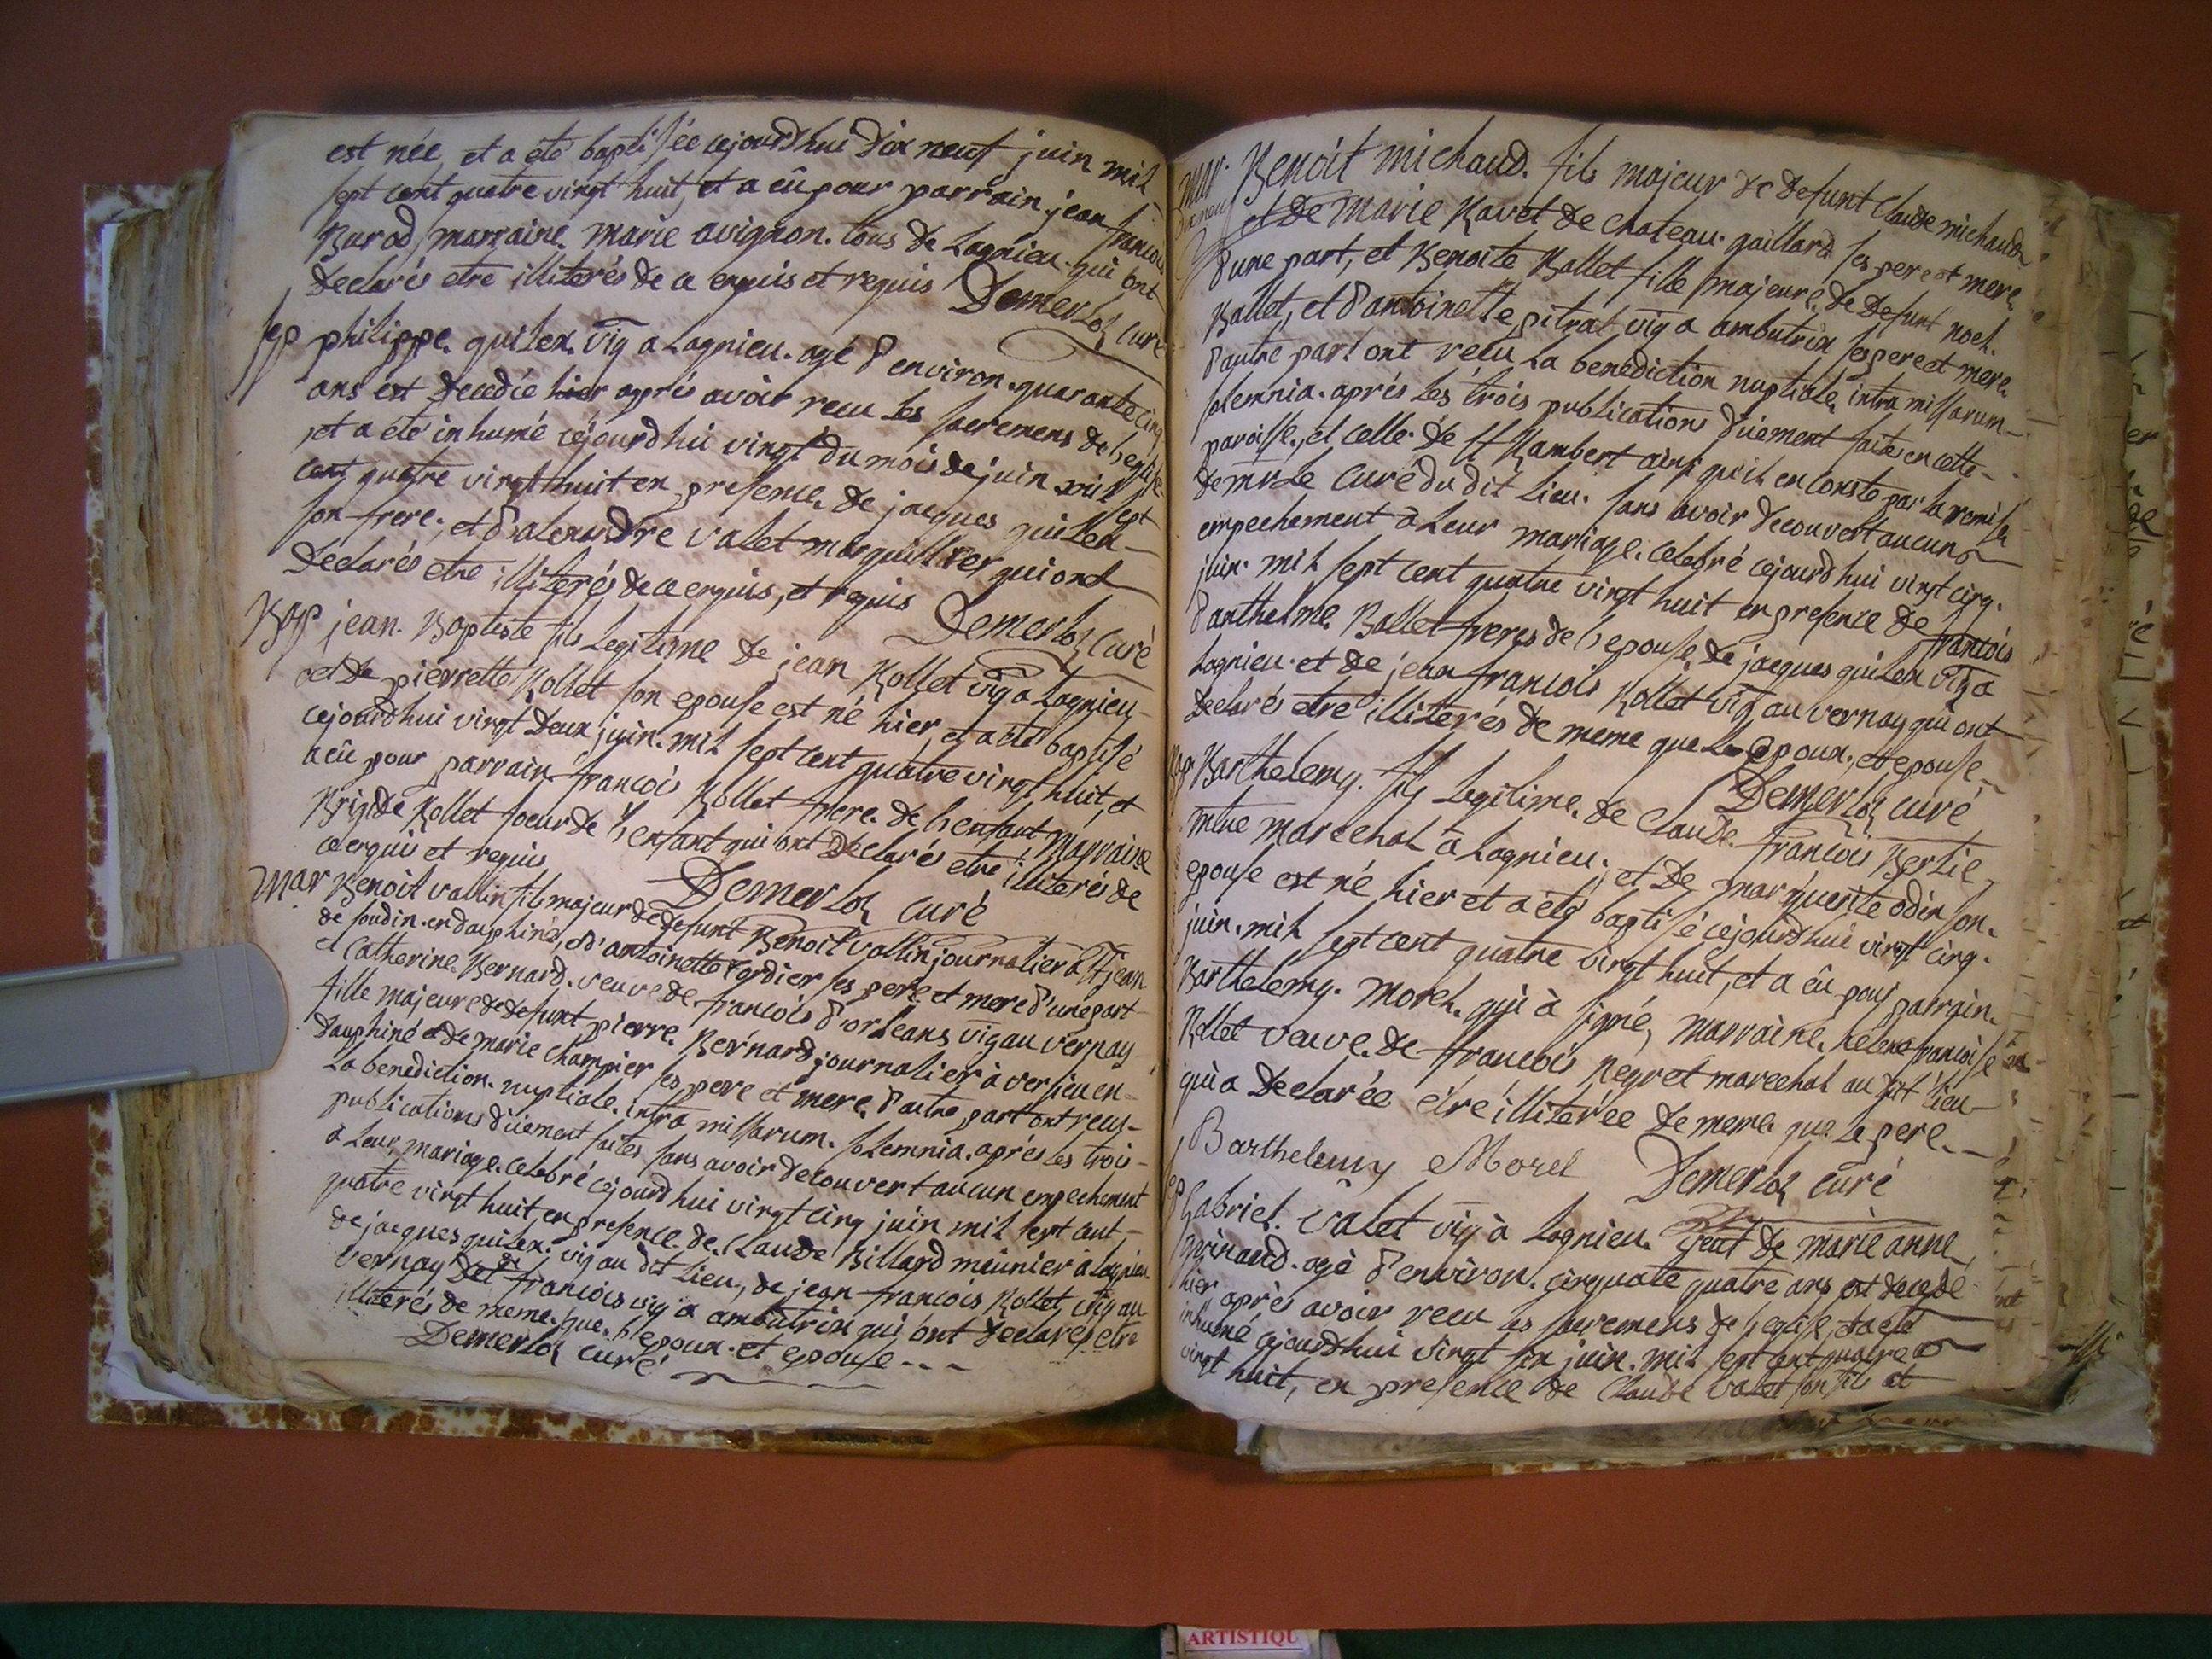 est née, et a eté baptisée cejourdhui dix neuf juin mil
sept cent quatre vingt huit, et a eû pour parrain jean francois
Burod marraine marie avignon. tous de Lagnieu. qui ont
declarés etre illiterés de ce enquis et requis Demerloz curé
sep philippe. guilen. vig a Lagnieu. agé d'environ. quarante cinq
ans est decedée hier aprés avoir recu les sacremens de l'eglise.
et a été inhumé cejourdhui vingt du mois de juin mil sept
cent quatre vingt huit en presence de jacques guilen
son frere, et d'alexandre valet marguillier qui ont
declarés etre illiterés de ce enquis, et requis Demerloz curé
Bap jean. Baptiste fils Legitime de jean Rollet vig a Lagnieu
et de pierrette Rollet son epouse est né hier, et a eté baptisé
cejourdhui vingt deux juin. mil sept cent quatre vingt huit, et
a eû pour parrain. francois Rollet frere. de l'enfant marraine
Brigide Rollet soeur de l'enfant qui ont declarés etre illiterés de
ce enquis et requis Demerloz curé
Mar Benoit vallin fils majeur de defunt Benoit vallin journalier à St jean
de soudin. en dauphiné, et d'antoinette Cordier ses pere et mere d'une part
et Catherine. Bernard. veuve de francois d'orleans vig au vernay
fille majeure de defunt pierre. Bernard journalier à versieu en
dauphiné et de marie Champier ses pere et mere. d'autre part ont recu
La benediction. nuptiale. intra missarum. solemnia. aprés les trois
publications dûement faites sans avoir decouvert aucun empechement
à Leur mariage. celebré cejourdhui vingt cinq juin mil sept cent
quatre vingt huit, en presence. de. Claude Billard meûnier à lagnieu
de jacques guilen. vig au dit Lieu, de jean francois Rollet, vig au
vernay et de francois vig à ambutrix qui ont declarés etre
illiterés de meme. que. l'epoux. et epouse
Demerloz curé
mar. Benoit michaud. fils majeur de defunt Claude michaud
et de marie Ravet de chateau. gaillard ses pere et mere
d'une part, et Benoite Ballet fille majeure. de defunt noel.
Ballet, et d'antoinette pitrat vig a ambutrix ses pere et mere.
d'autre part ont recu La benediction nuptiale, intra missarum
solemnia. aprés Les trois publications dûement faites en cette
paroisse, et celle de St Rambert ainsi qu'il en conste par la remise
de mr Le curé du dit Lieu. sans avoir decouvert aucun
empechement à Leur mariage. celebré cejourdhui vingt cinq.
juin. mil sept cent quatre vingt huit en presence de francois
d'anthelme Ballet freres de l'epouse, de jacques guilen vig a
Lagnieu. et de jean francois Rollet vig au vernay qui ont
declarés etre illiterés de meme que Les epoux. et epouse
Demerloz curé
Bap. Barthelemy. fils Legitime. de Claude. francois Berlie
mtre marechal à Lagnieu, et de marguerite odin son.
epouse est né hier et a eté baptisé cejourdhui vingt cinq.
juin. mil sept cent quatre vingt huit, et a eû pour parrain.
Barthelemy. morel. qui à signé, marraine. helene francoise
Rollet veuve. de francois negret marechal au dit Lieu
qui a declarée être illiterée de meme. que le pere.
Barthelemy Morel Demerloz curé
Sep Gabriel. valet vig à Lagnieu. veuf de marie anne
grinand. agé d'environ. cinquate quatre ans est decedé
hier aprés avoir recu les sacremens de l'eglise, et a eté
inhumé cejourdhui vingt six juin. mil sept cent quatre
vingt huit, en presence de Claude valet son fils et
ARTISTIQU